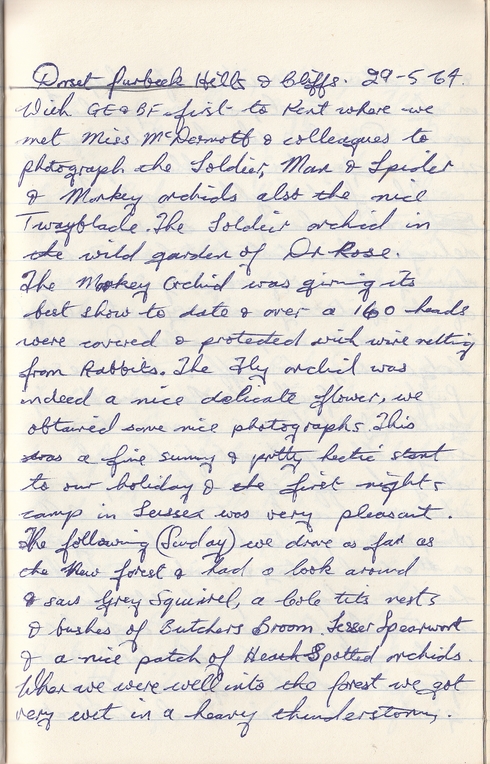 Dorset Purbeck Hills & Cliffs. 29-5-64.
With GE&BF first to Kent where we
met Miss McDermott & colleagues to
photograph the Soldier, Man & Spider
& Monkey orchids also the nice
Twayblade. The Soldier orchid in
the wild garden of Dr Rose.
The Mokey Orchid was giving its
best show to date & over a 160 heads
were covered & protected with wire netting
from Rabbits. The Fly orchid was
indeed a nice delicate flower, we
obtained some nice photographs. This
was a fine sunny & pretty hectic start
to our holiday & the first nights
camp in Sussex was very pleasant.
The following (Sunday) we drove as far as
the New forest & had a look around
& saw Grey Squirrel, a Cole tits nests
& bushes of Butchers Broom Lesser Spearwort
& a nice patch of Heath Spotted orchids.
When we were well into the forest we got
very wet in a heavy thunderstorm.